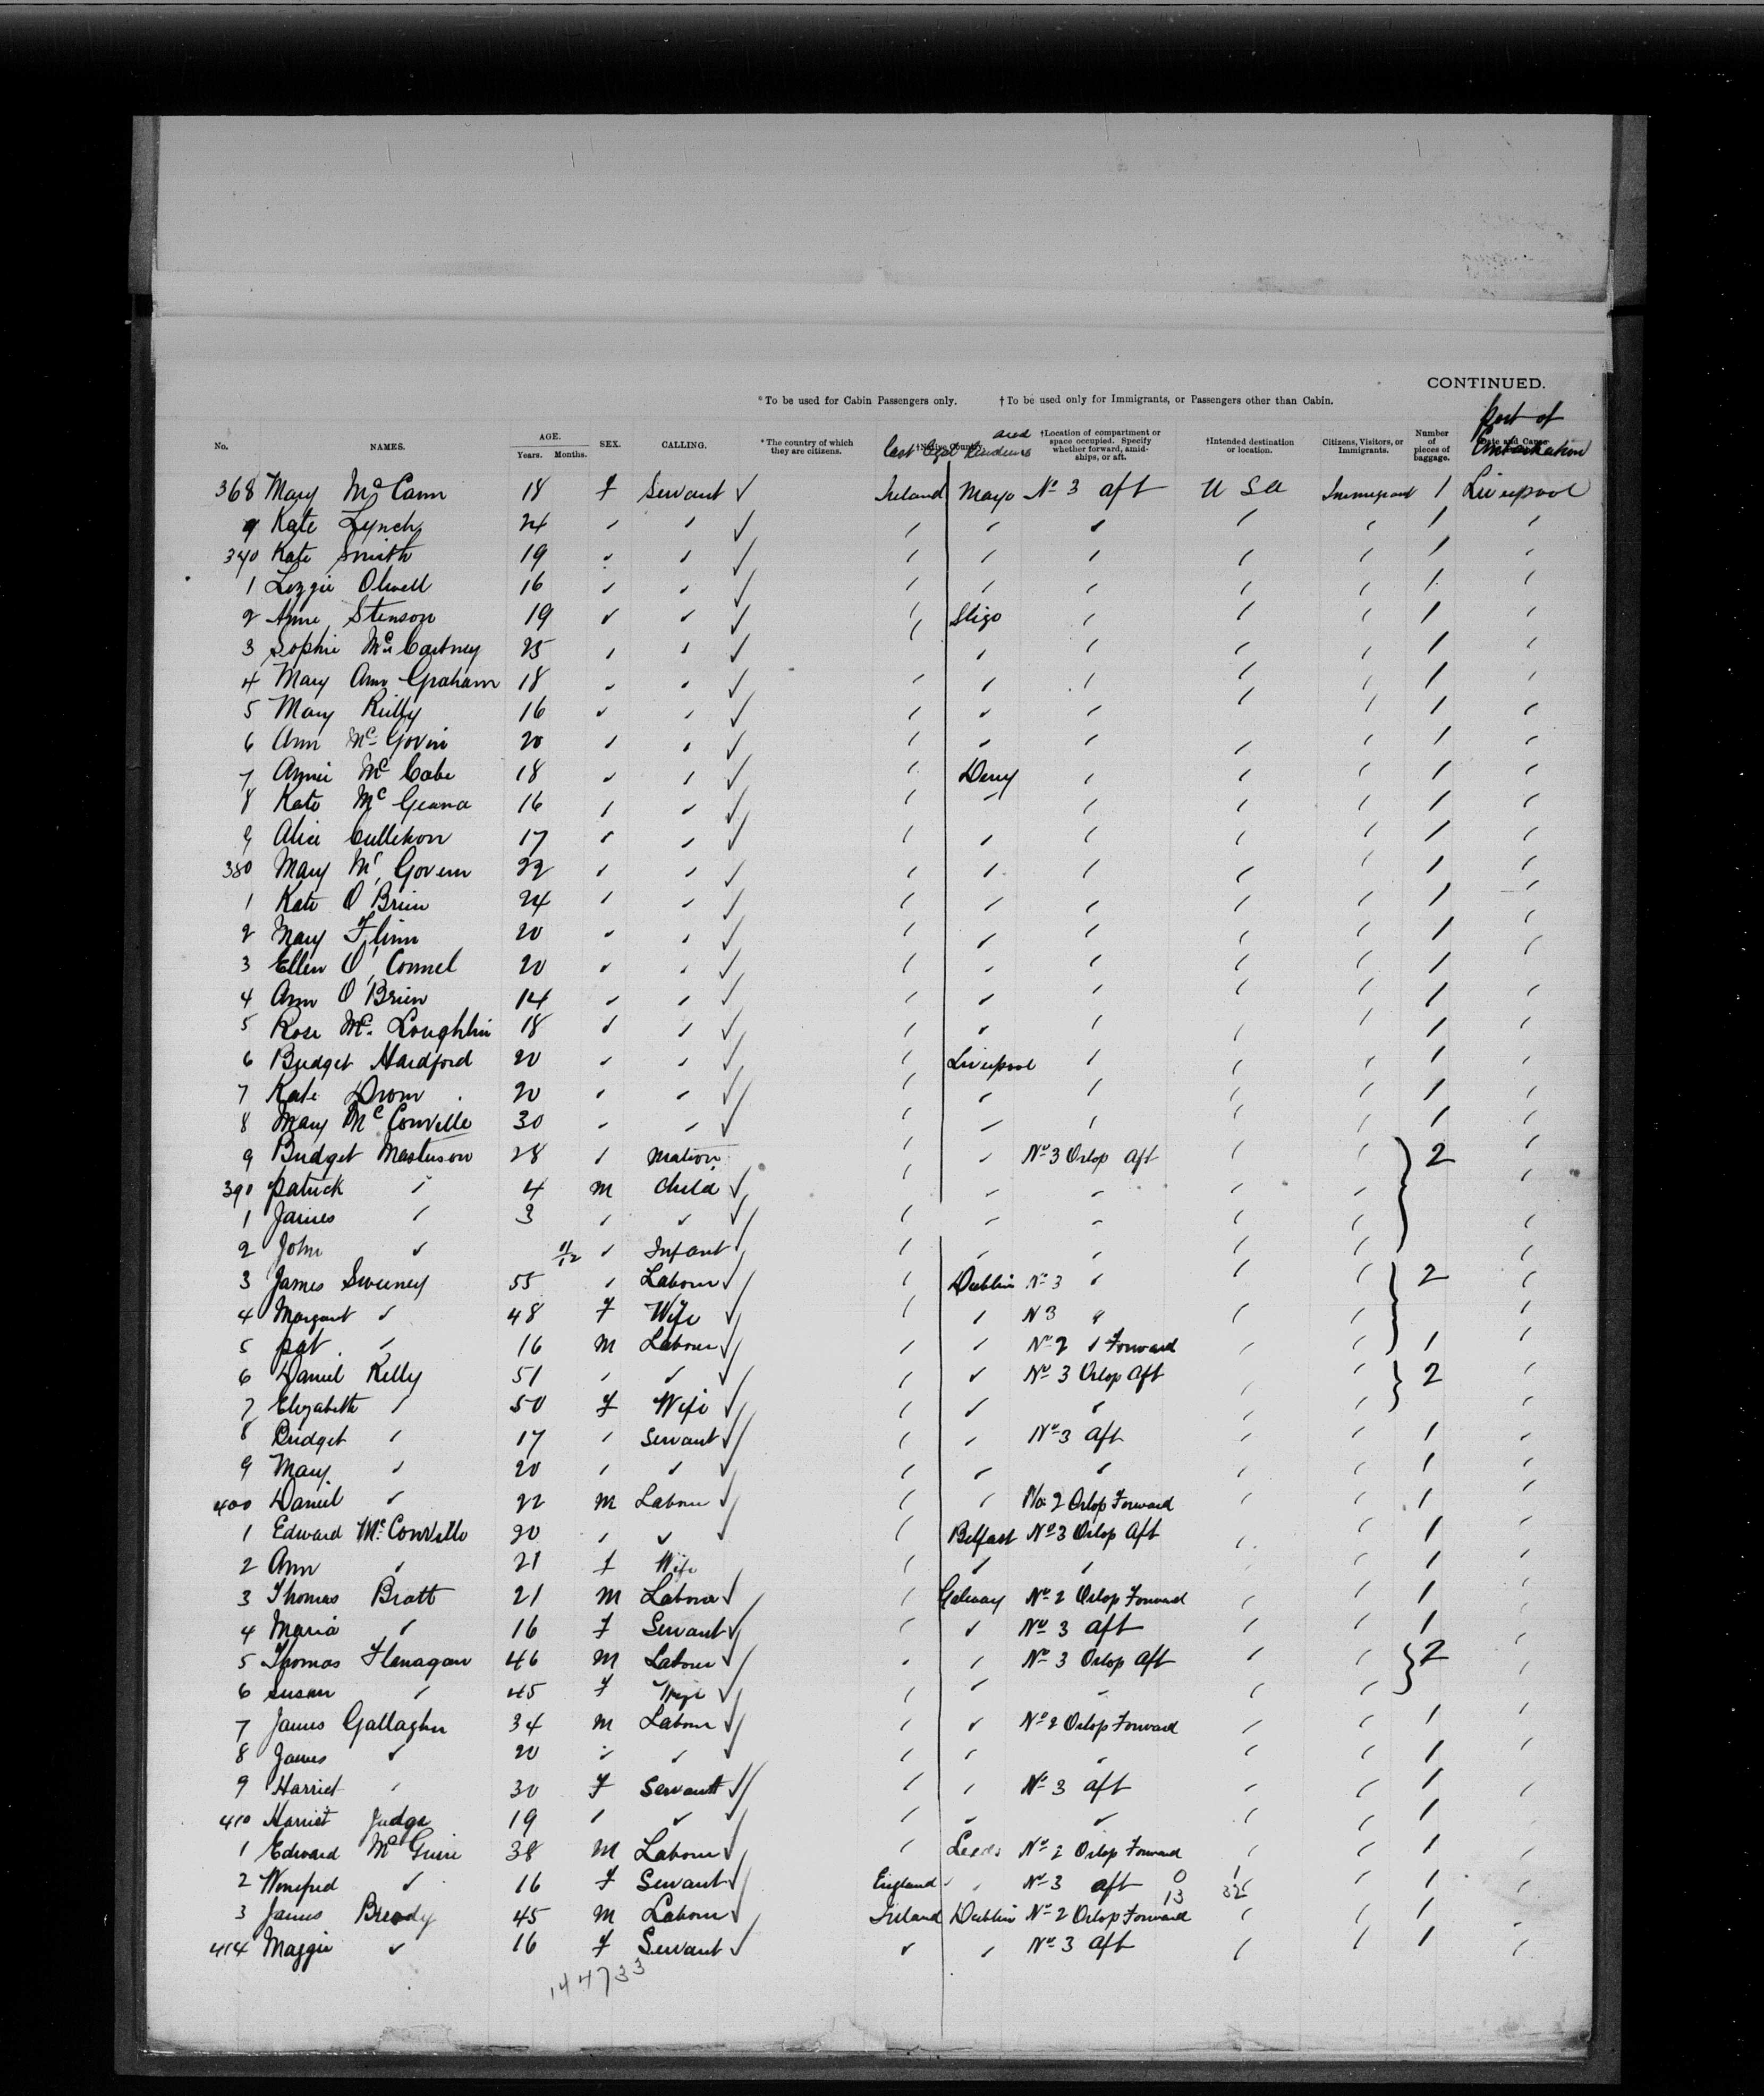 CONTINUED.
*To be used for Cabin Passengers only. †To be used only for Immigrants, or Passengers other than Cabin.
No. NAMES. AGE. Years. Months. SEX. CALLING. *The country of which they are citizens. †Native Country. Last legal Residence and †Location of compartment or space occupied. Specify whether forward, amidships, or aft. †Intended destination or location. Citizens, Visitors, or Immigrants. Number of pieces of baggage. Port of Embarkation
368 Mary McCann 18 F Servant ✓ Ireland Mayo No 3 aft U S A Immigrant 1 Liverpool
9 Kate Lynch 24 " " ✓ " " " " " 1 "
340 Kate Smith 19 " " ✓ " " " " " 1 "
1 Lizzie Olwell 16 " " ✓ " " " " " 1 "
2 Anne Stenson 19 " " ✓ " Sligo " " " 1 "
3 Sophie McCartney 25 " " ✓ " " " " " 1 "
4 Mary Ann Graham 18 " " ✓ " " " " " 1 "
5 Mary Reilly 16 " " ✓ " " " " " 1 "
6 Ann McGovin 20 " " ✓ " " " " " 1 "
7 Annie McCabe 18 " " ✓ " Derry " " " 1 "
8 Kate McGeana 16 " " ✓ " " " " " 1 "
9 Alice Cullikon 17 " " ✓ " " " " " 1 "
380 Mary McGovern 22 " " ✓ " " " " " 1 "
1 Kate O'Brien 24 " " ✓ " " " " " 1 "
2 Mary Flinn 20 " " ✓ " " " " " 1 "
3 Ellen O'Connel 20 " " ✓ " " " " " 1 "
4 Ann O'Brien 14 " " ✓ " " " " " 1 "
5 Rose Mc. Loughlin 18 " " ✓ " " " " " 1 "
6 Bridget Hardford 20 " " ✓ " Liverpool " " " 1 "
7 Kate Drom 20 " " ✓ " " " " " 1 "
8 Mary McConville 30 " " ✓ " " " " " 1 "
9 Bridget Masterson 28 " Matron " " No 3 Orlop Aft " " 2 "
390 Patrick " 4 M Child ✓ " " " " " "
1 James " 3 " " ✓ " " " " " "
2 John " 11/12 " Infant ✓ " " " " " "
3 James Sweeney 55 " Labour ✓ " Dublin No 3 " " " 2 "
4 Margaret " 48 F Wife ✓ " " N 3 " " " "
5 Pat " 16 M Labour ✓ " " No 2 " Forward " " 1 "
6 Daniel Kelly 51 " " ✓ " " No 3 Orlop Aft " " 2 "
7 Elizabeth " 50 F Wife ✓ " " " " " "
8 Bridget " 17 " Servant ✓ " " No 3 Aft " " 1 "
9 Mary " 20 " " ✓ " " " " " 1 "
400 Daniel " 22 M Labour ✓ " " No. 2 Orlop Forward " " 1 "
1 Edward McConville 20 " " ✓ " Belfast No 3 Orlop Aft " " 1 "
2 Ann " 21 F Wife " " " " " 1 "
3 Thomas Bratt 21 M Labour ✓ " Galway No 2 Orlop Forward " " 1 "
4 Maria " 16 F Servant ✓ " " No 3 Aft " " 1 "
5 Thomas Flanagan 46 M Labour ✓ " " No 3 Orlop Aft " " 2 "
6 Susan " 45 F Wife ✓ " " " " " "
7 James Gallagher 34 M Labour ✓ " " No 2 Orlop Forward " " 1 "
8 James " 20 " " ✓ " " " " " 1 "
9 Harriet " 30 F Servant ✓ " " No 3 aft " " 1 "
410 Harriet Judge 19 " " ✓ " " " " " 1 "
1 Edward McGuire 38 M Labour ✓ " Leeds No 2 Orlop Forward " " 1 "
2 Winefred " 16 F Servant ✓ England " No 3 aft 0 1 " 1 "
13 32
3 James Brody 45 M Labour ✓ Ireland Dublin No 2 Orlop Forward " " 1 "
414 Maggie " 16 F Servant ✓ " " No 3 aft " " 1 "
144733